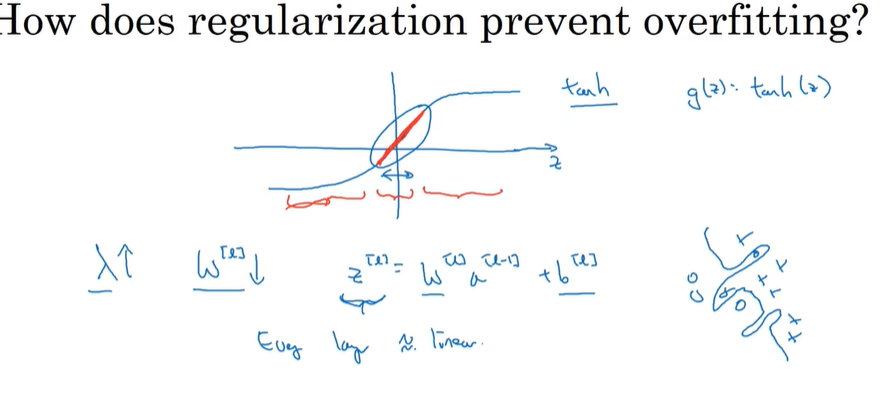 How does regularization prevent overfitting?
tanh
g(z) = tanh(z)
z
λ↑ W^[l]↓ z^[l] = W^[l] a^[l-1] + b^[l]
Every layer ≈ linear.